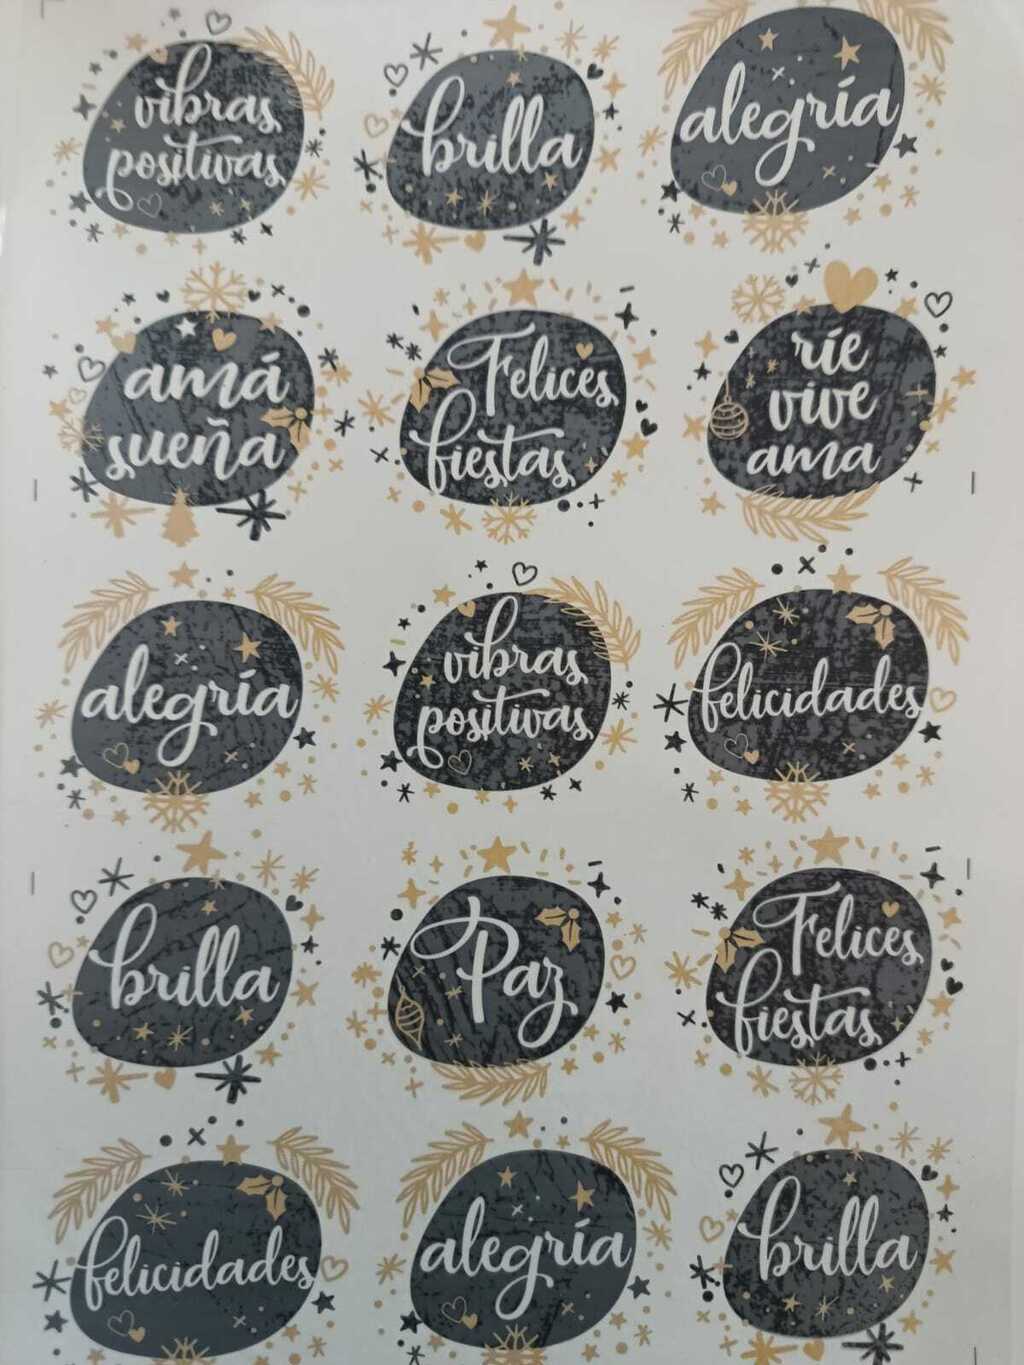 vibras
positivas
brilla
alegría
amá
sueña
Felices
fiestas
ríe
vive
ama
alegría
vibras
positivas
felicidades
brilla
Paz
Felices
fiestas
felicidades
alegría
brilla